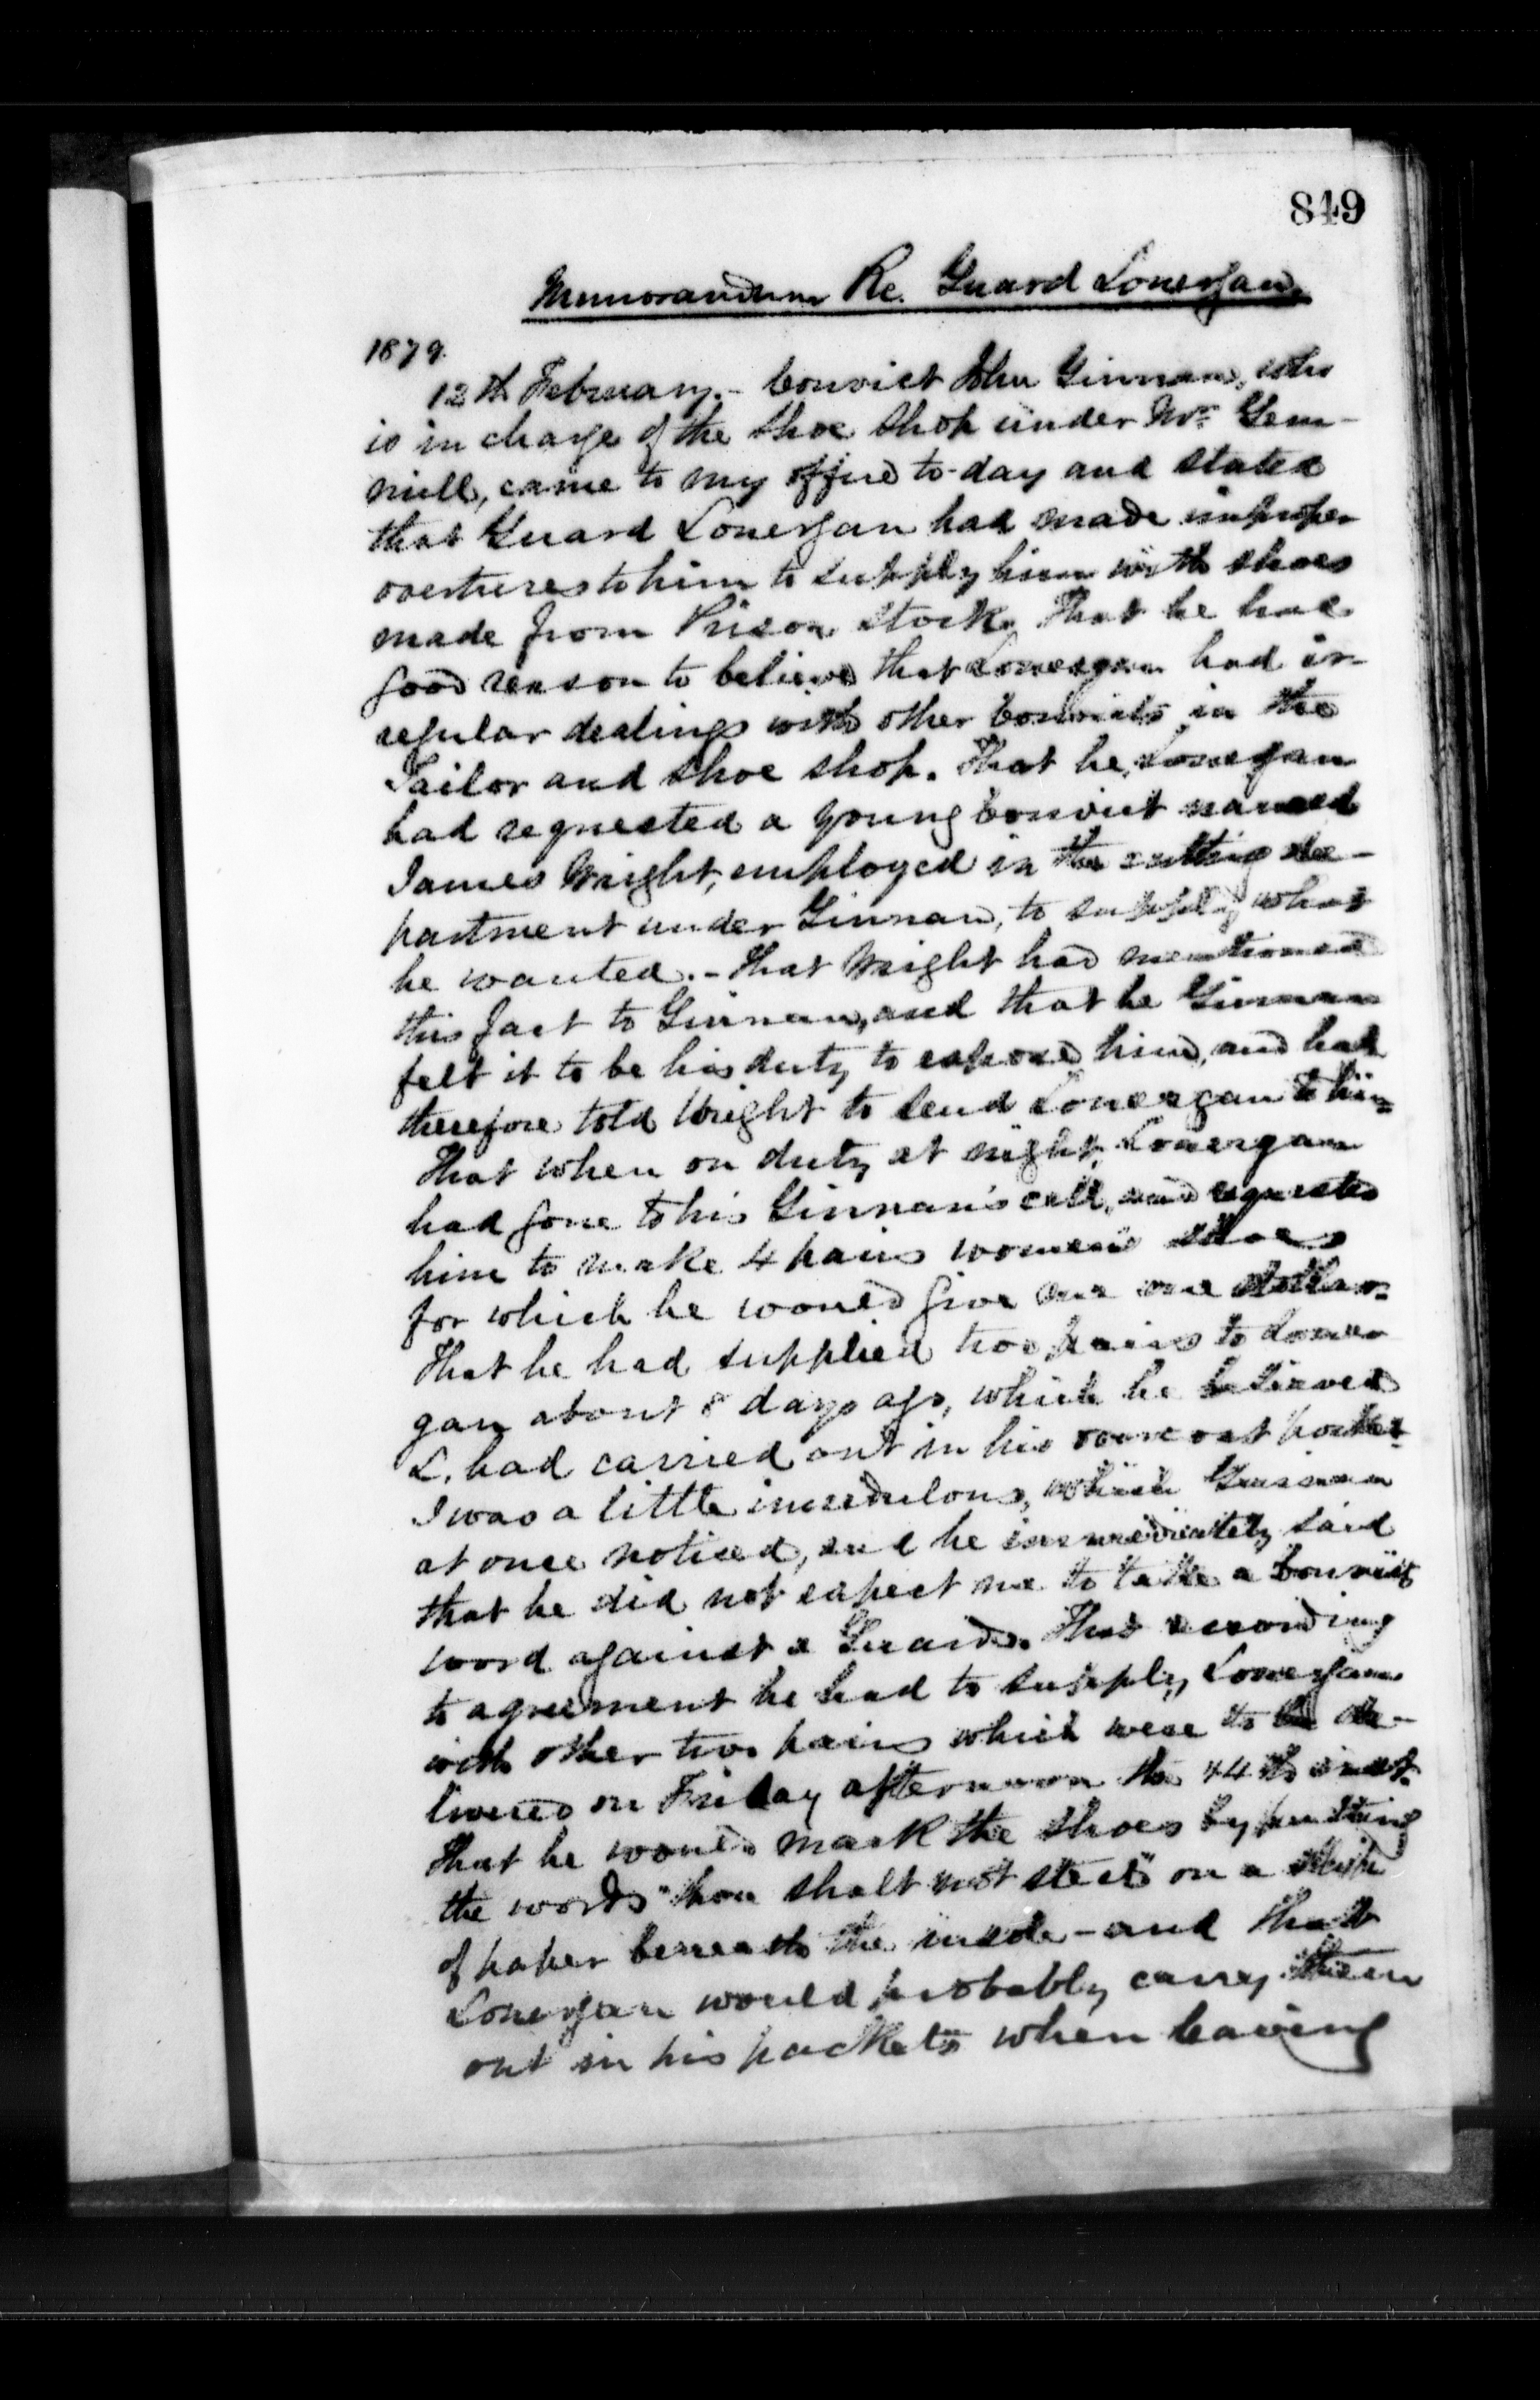 849
Memorandum Re. Guard Lonergan
1879.
12th February. - Convict John Ginnan, who
is in charge of the Shoe Shop under Mr. Gem-
mill, came to my office to-day and stated
that Guard Lonergan had made improper
overtures to him to supply him with shoes
made from Prison stock. That he had
good reason to believe that Lonergan had ir-
regular dealings with other Convicts in the
Tailor and Shoe Shop. That he, Lonergan
had requested a young Convict named
James Wright, employed in the cutting de-
partment under Ginnan, to supply what
he wanted. - That Wright had mentioned
this fact to Ginnan, and that he Ginnan
felt it to be his duty to expose him, and had
therefore told Wright to send Lonergan to him.
That when on duty at night, Lonergan
had gone to his Ginnan's cell, and requested
him to make 4 pairs women's shoes
for which he would give one dollar.
That he had supplied two pairs to Loner-
gan about 8 days ago, which he believed
L. had carried out in his overcoat pocket.
I was a little incredulous, which Ginnan
at once noticed, and he immediately said
that he did not expect me to take a Convict's
word against a Guard. That according
to agreement he had to supply Lonergan
with other two pairs which were to be de-
livered on Friday afternoon the 14th inst.
That he would mark the shoes by putting
the words "thou shalt not steal" on a slip
of paper beneath the insole - and that
Lonergan would probably carry them
out in his pockets when leaving